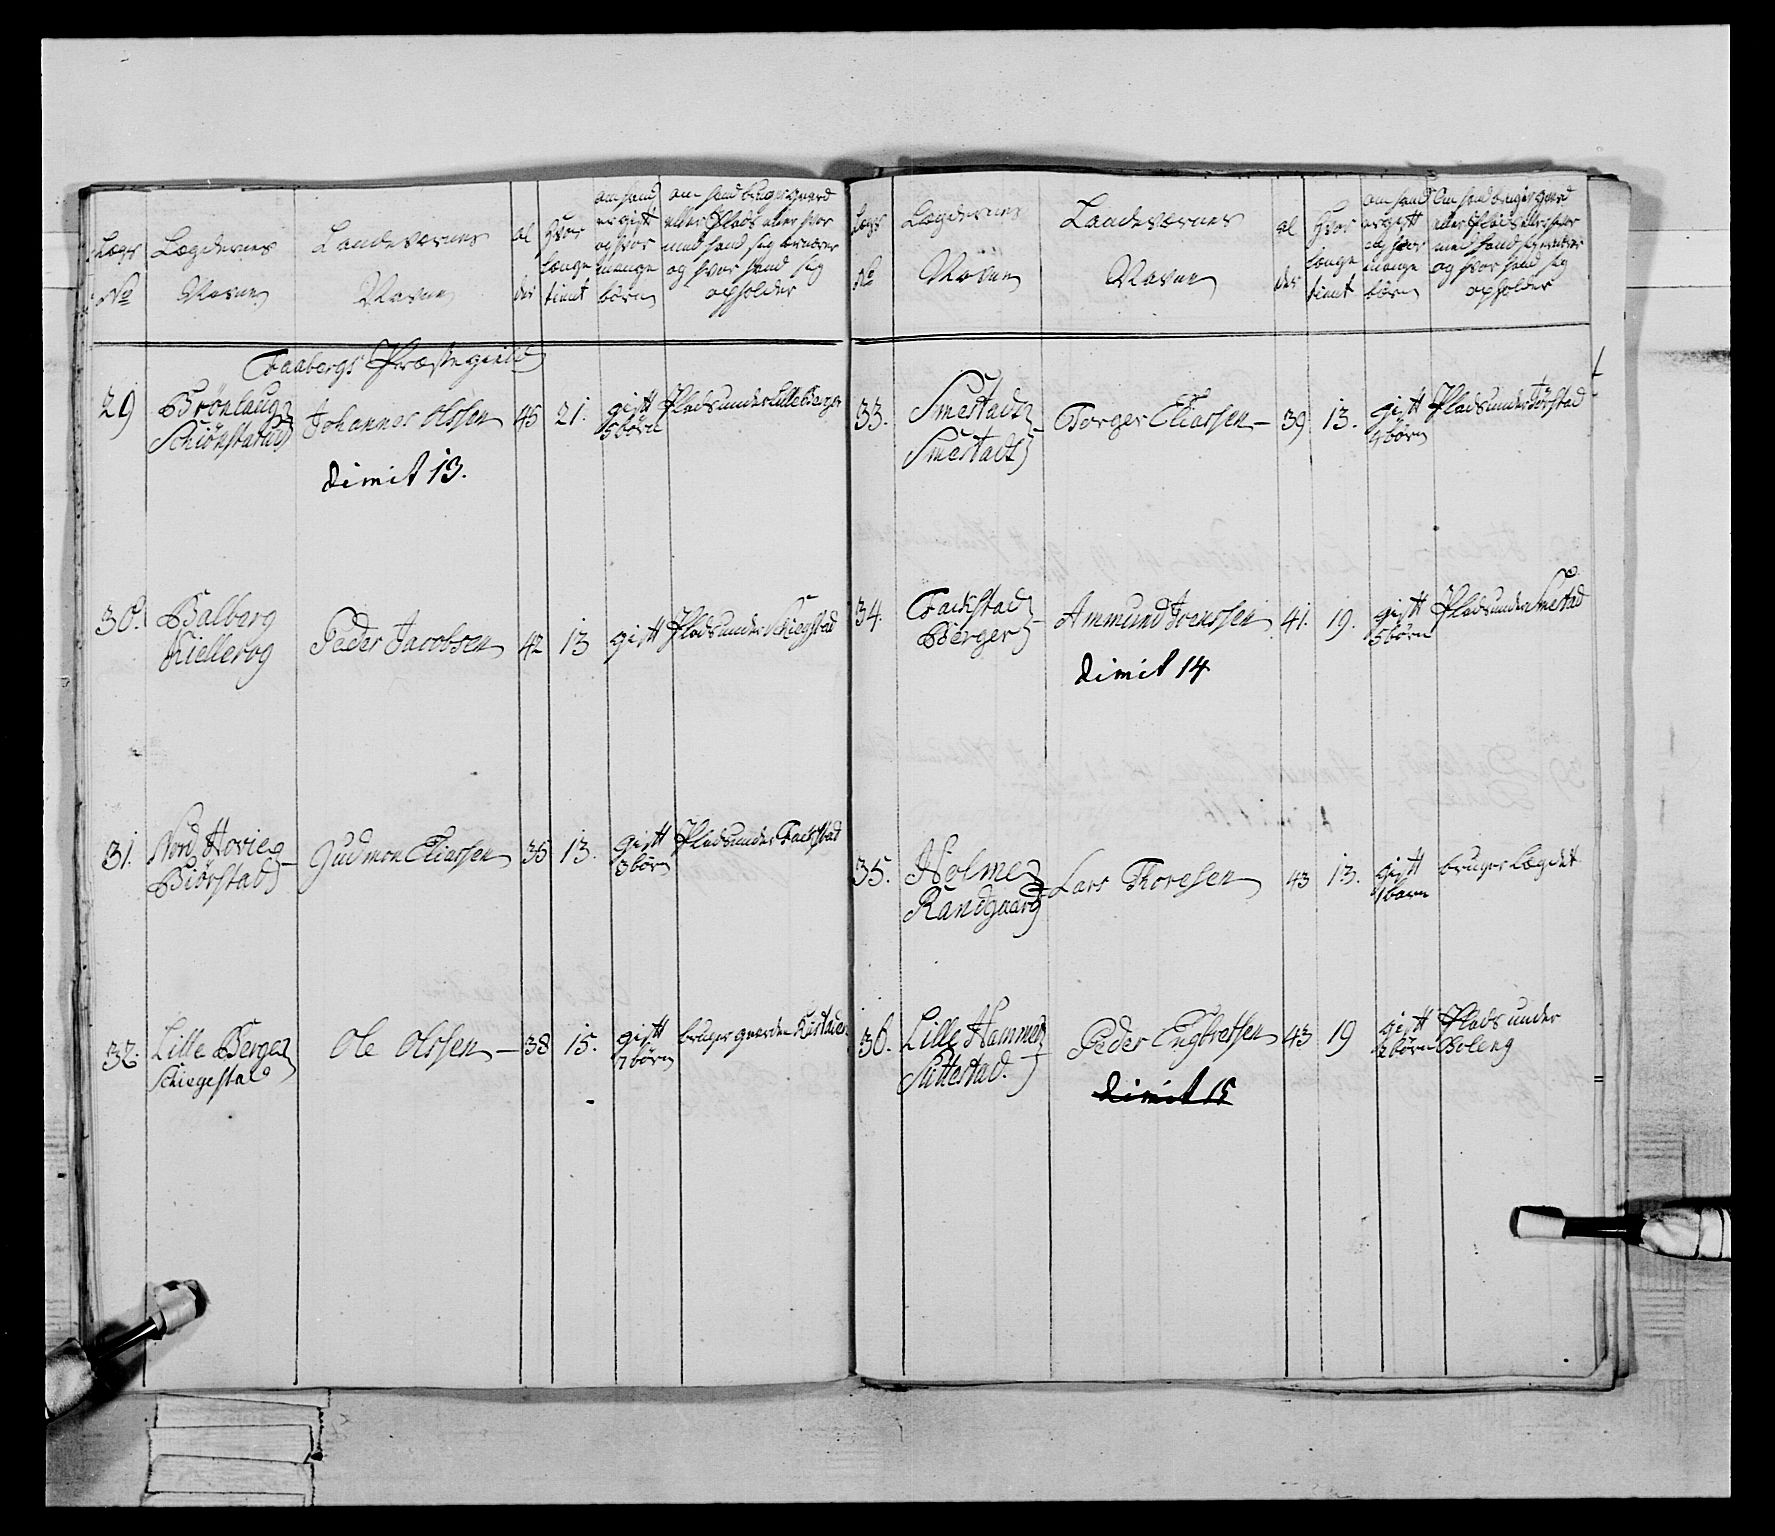 Lægs No
Lægdernes Navne
Landeværnes Navne
al der
hvor længe tient
om hand er gift og hvor mange børn
om hand bruger gaard eller Plads eller hvor med hand sig ernærer og hvor hand sig opholder
Faabergs Præstegield
29 Brönlaug Schiönstarud Johannes Olssen 45 21. gift 5 børn Plads under Lille Berger
dimit 13.
30. Balberg Kiellerog Peder Jacobsen 42 13 gift Plads under
31. Nord Hovie Biörstad Gudmon Eliassen 35 13. gift 3 børn Plads under Fackstad
32. Lille Berge Schiegestad Ole Olssen 38 15. gift 7 børn bruger gaarden
Lægs No
Lægdernes Navne
Landeværnes Navne
al der
hvor længe tient
om hand er gift og hvor mange børn
Om hand bruger gaard eller Plads eller hvor med hand sig ernærer og hvor hand sig opholder
33. Smestad Smestad Torger Eliassen 39 13. gift 4 børn Plads under
34. Fackstad Berger Ammund Iversen 41. 19. gift 5 børn Plads under Smestad
dimit 14
35. Holme Randgaard Lars Thoresen 43 13. gift 1 barn bruger Lægdet
36. Lille Hammer Suttestad. Peder Engbretsen 43 19 gift 2 børn Plads under
dimit 15